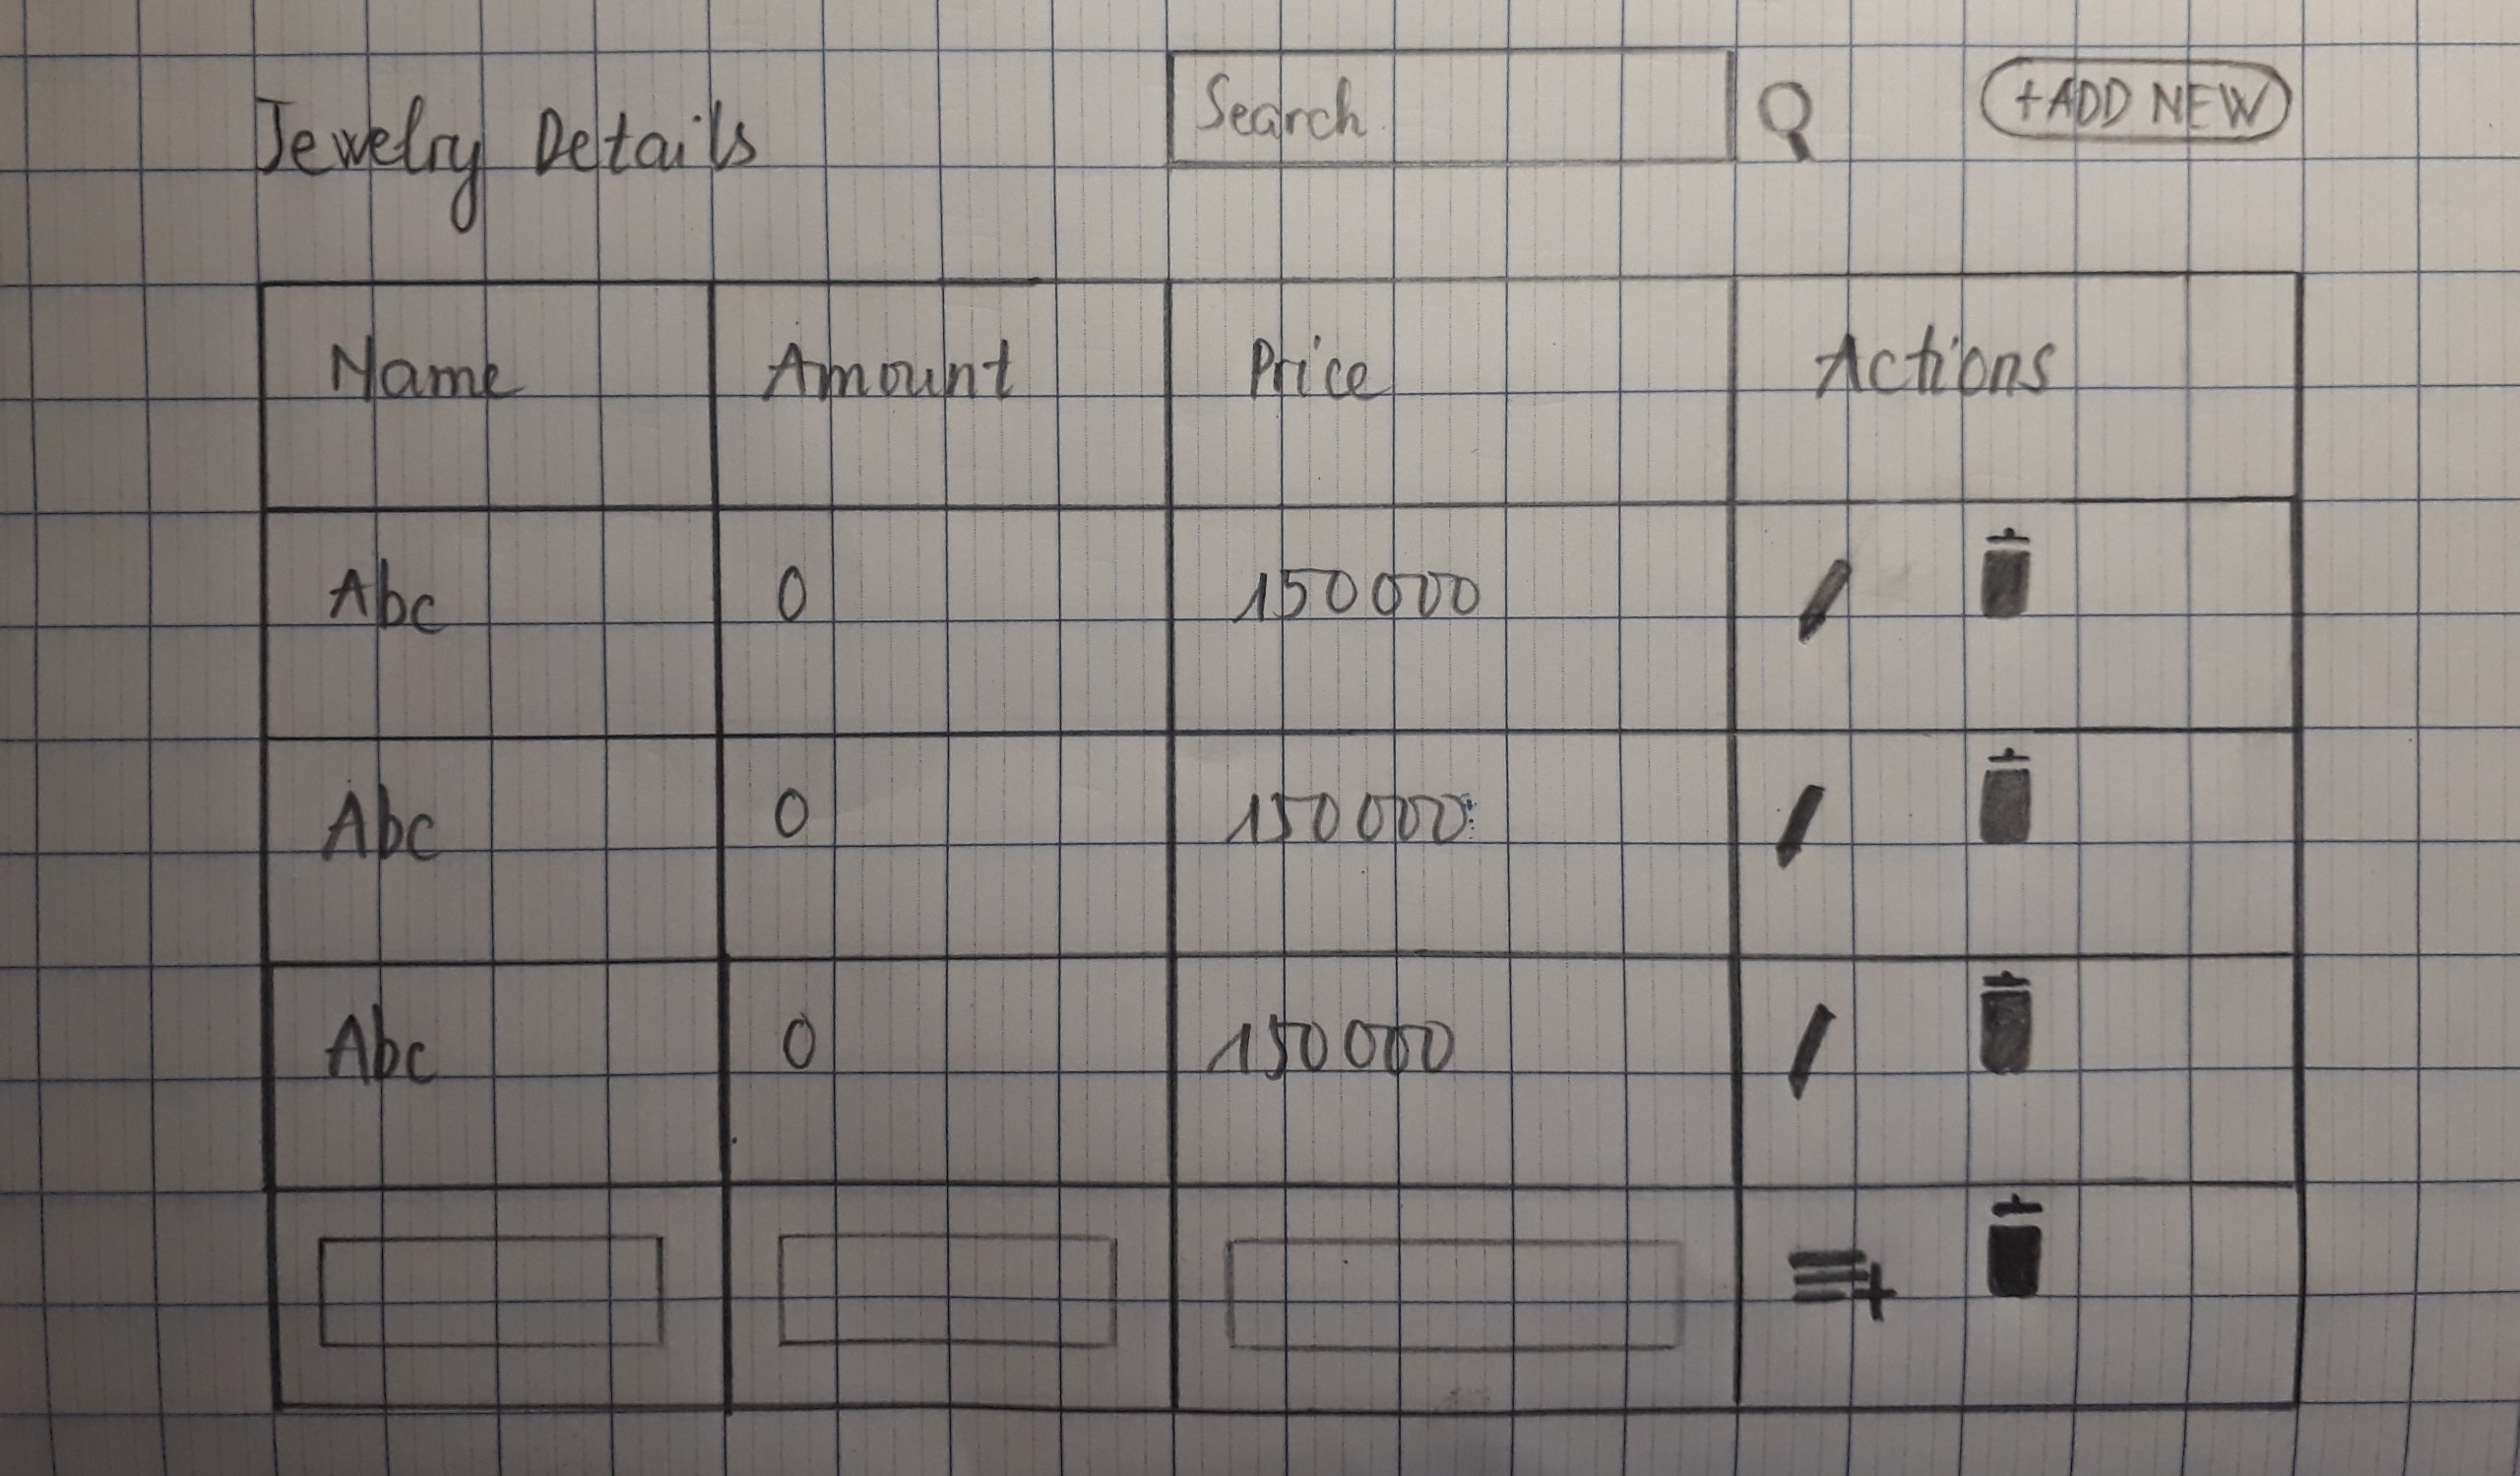 Jewelry Details
Search
+ADD NEW
Name Amount Price Actions
Abc 0 150000
Abc 0 150000
Abc 0 150000